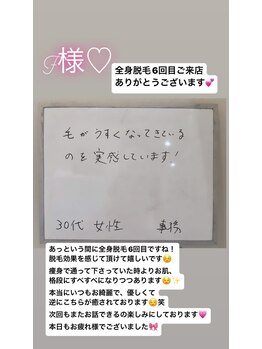 F様♡
全身脱毛6回目ご来店
ありがとうございます💕
毛がうすくなってきている
のを実感しています!
30代 女性 事務
あっという間に全身脱毛6回目ですね！
脱毛効果を感じて頂けて嬉しいです☺️
痩身で通って下さっていた時よりお肌、
格段にすべすべになりつつあります☺️✨
本当にいつもお綺麗で、優しくて
逆にこちらが癒されております☺️笑
次回もまたお話できるの楽しみにしております💗
本日もお疲れ様でございました🎀